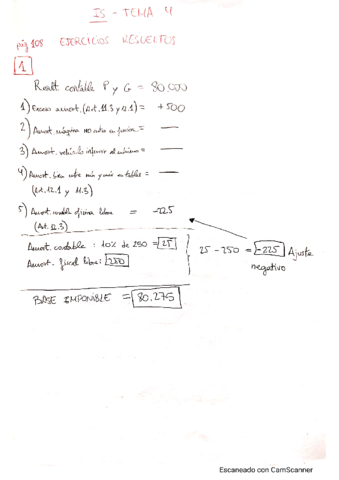 IS - TEMA 4
pág 108 EJERCICIOS RESUELTOS
1
Result. contable P y G = 80.000
1) Exceso amort. (Art. 11.3 y 12.1) = +500
2) Amort. máquina no entra en función = —
3) Amort. vehículo inferior al mínimo = —
4) Amort. bien entre máx y mín en tablas = —
(Art. 12.1 y 11.3)
5) Amort. mueble oficina libre = -225
(Art. 12.3)
Amort. contable: 10% de 250 = 25
25 - 250 = -225 Ajuste negativo
Amort. fiscal libre: 250
BASE IMPONIBLE = 80.275
Escaneado con CamScanner